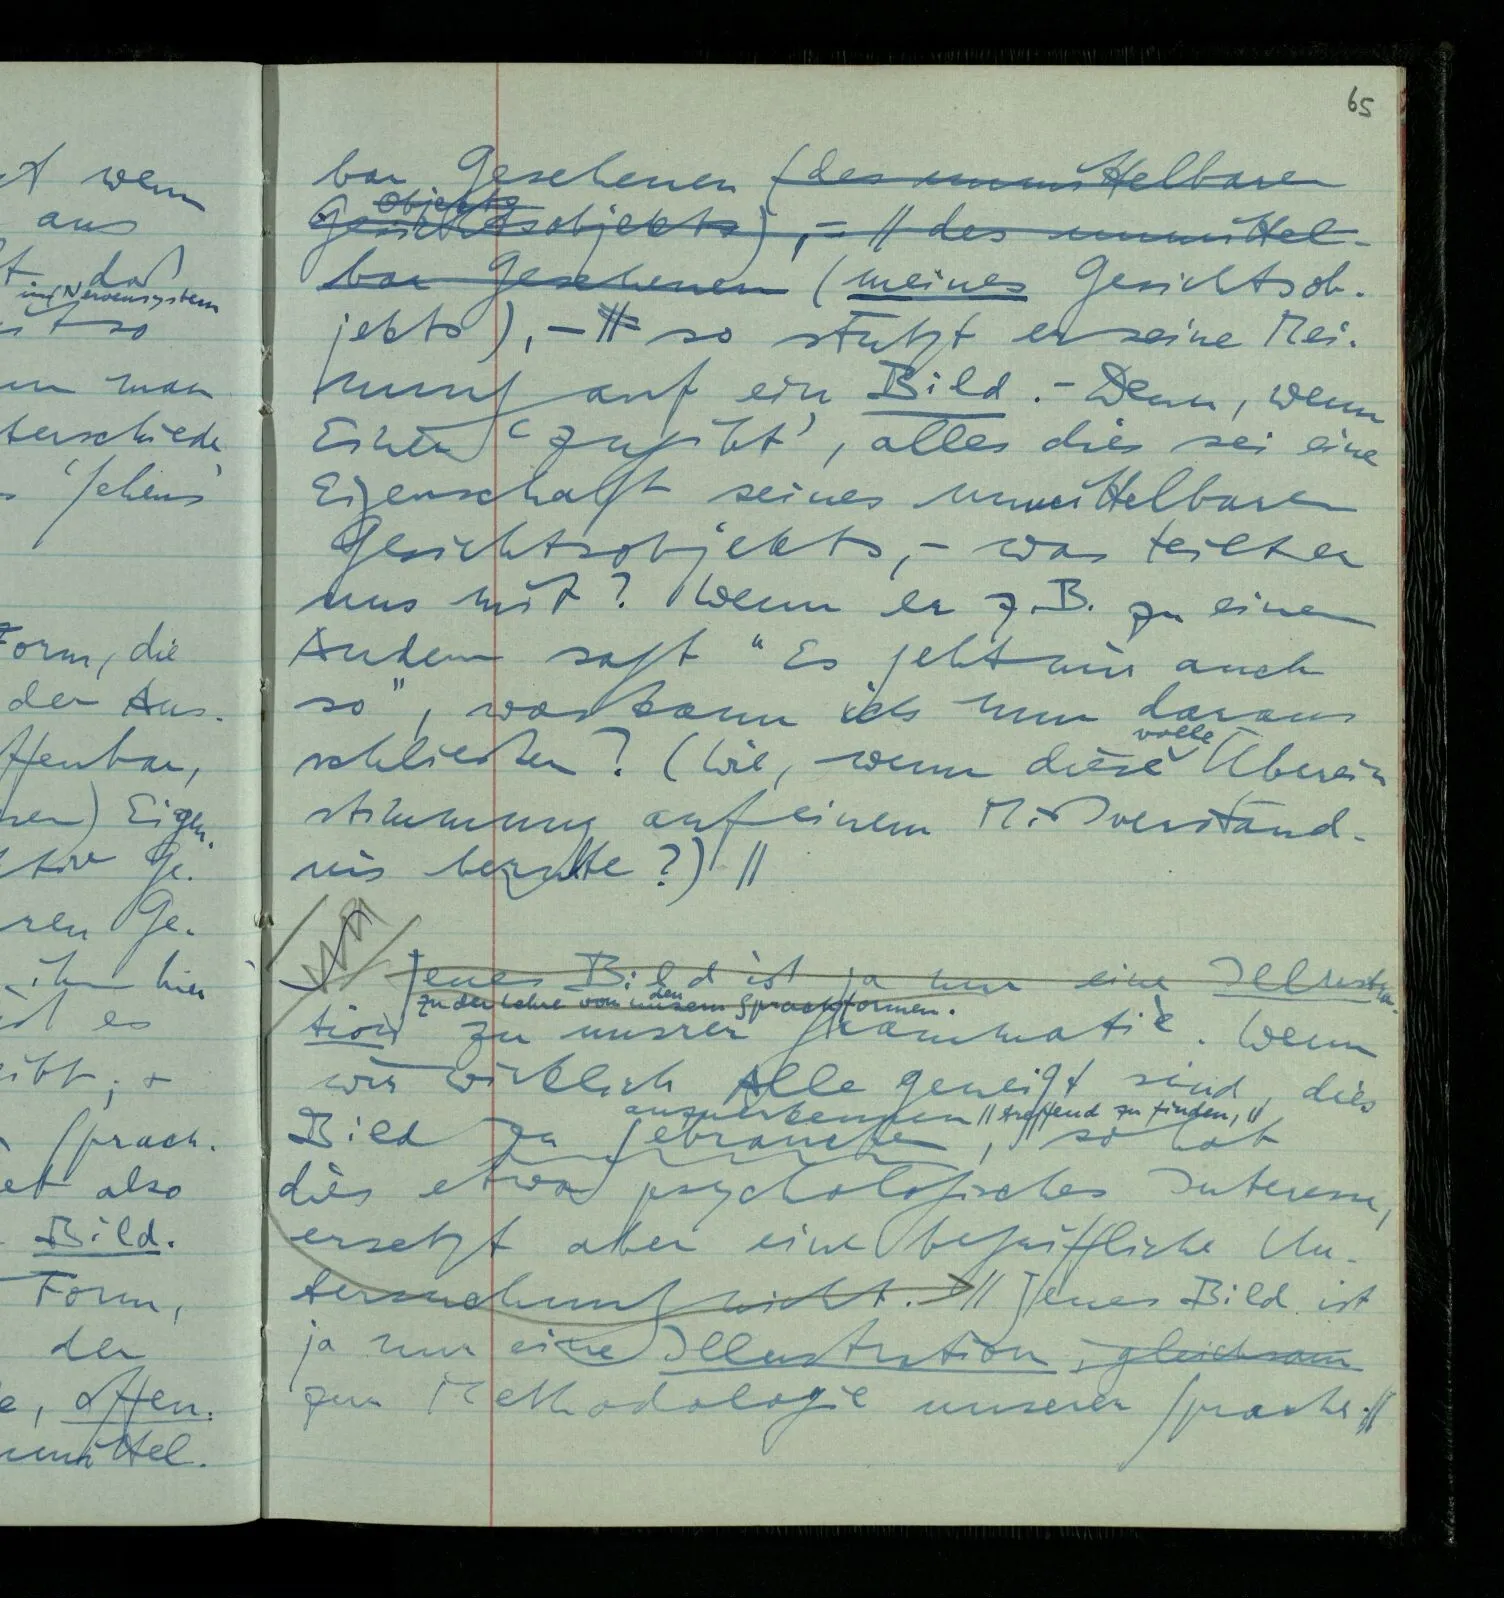 t wenn
aus
t daß
im Nervensystem
ist so
nn man
terschiede
s ‘Sehens’
Form, die
der Aus-
ffenbar,
ren) Eigen-
ktiv Ge-
ren Ge-
ihm hier
es
ibt; &
Sprach-
et also
Bild.
Form,
der
e, offen-
unmittel-
65
bar Gesehenen (des unmittelbaren
Objekts
Gesichtsobjekts), – // des unmittel-
bar Gesehenen (meines Gesichtsob-
jekts), – // so stützt er seine Mei-
nung auf ein Bild. – Denn, wenn
Einer ‘zugibt’, alles dies sei eine
Eigenschaft seines unmittelbaren
Gesichtsobjekts, – was teilt er
uns mit? Wenn er z.B. zu einem
Andern sagt “Es geht mir auch
so”, was kann ich nun daraus
schließen? (Wie, wenn diese volle Überein
stimmung auf einem Mißverständ-
nis beruhte?) //
Jenes Bild ist ja nur eine Illustra-
zu der Lehre von unsern den Sprachformen.
tion zu unsrer Grammatik. Wenn
wir wirklich Alle geneigt sind, dies
anzuerkennen // treffend zu finden, //
Bild zu gebrauchen, so hat
dies etwa psychologisches Interesse,
ersetzt aber eine begriffliche Un-
tersuchung nicht. // Jenes Bild ist
ja nur eine Illustration, gleichsam
zur Methodologie unserer Sprache. //